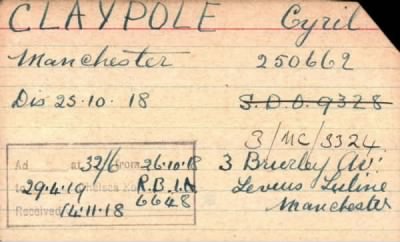 CLAYPOLE Cyril
Manchester 250662
Dis 25.10.18 S.D.O. 9328
3/MC/3324
Ad at 32/6 from 26.10.18
to 29.4.19 Chelsea R.B.
Received 14.11.18 6648
3 Brierley Av:
Levens
Manchester